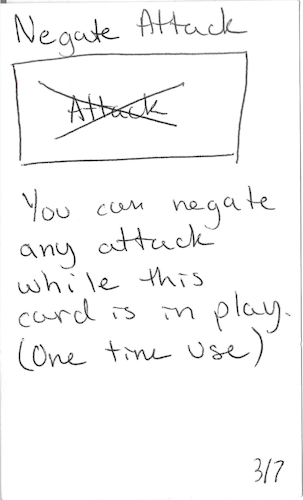 Negate Attack
Attack
You can negate
any attack
while this
card is in play.
(One time use)
3/7